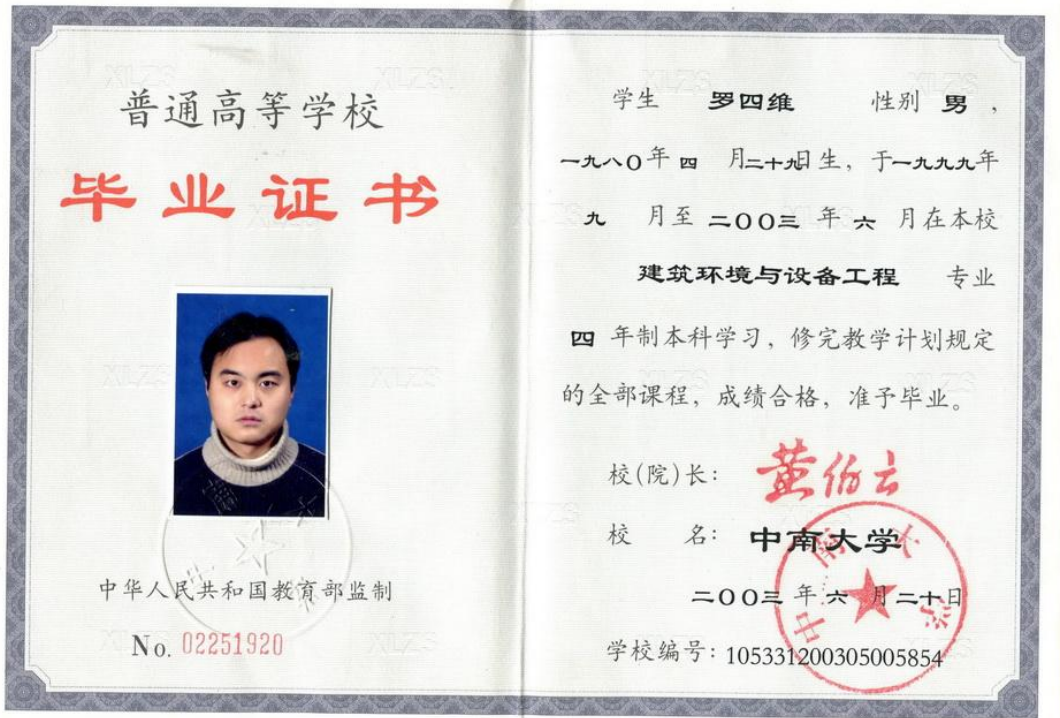 普通高等学校
毕业证书
中华人民共和国教育部监制
No. 02251920
学生 罗四维 性别 男，
一九八〇年四月二十九日生，于一九九九年
九月至二〇〇三年六月在本校
建筑环境与设备工程 专业
四年制本科学习，修完教学计划规定
的全部课程，成绩合格，准予毕业。
校(院)长：黄伯云
校名：中南大学
中南大学
二〇〇三年六月二十日
学校编号：105331200305005854